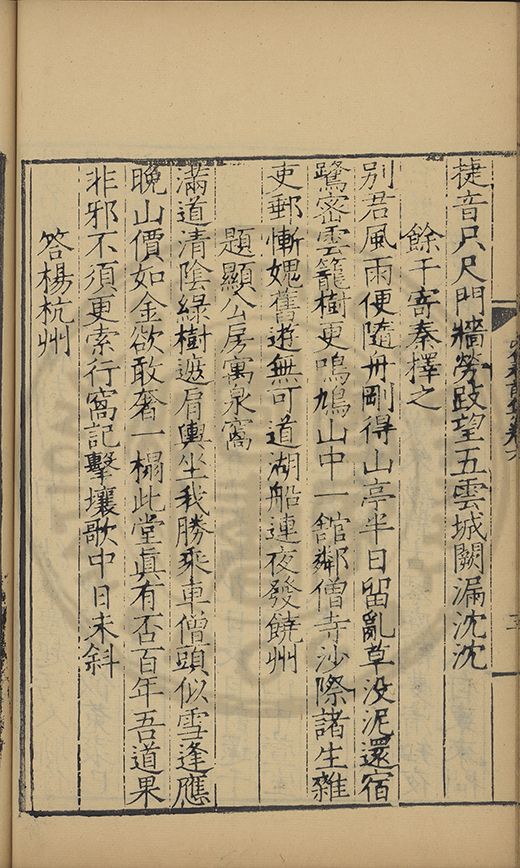 捷音只尺門牆勞跂望五雲城闕漏沈沈
餘干寄秦擇之
别君風雨便隨舟剛得山亭半日留亂草没泥還宿
鷺密雲籠樹更鳴鳩山中一館鄰僧寺沙際諸生雜
吏郵慚媿舊遊無可道湖船連夜發饒州
題顯公房寓泉窩
滿道清陰綠樹遮肩輿坐我勝乘車僧頭似雪逢應
晚山價如金欲敢奢一榻此堂眞有否百年吾道果
非邪不須更索行窩記擊壤歌中日未斜
答楊杭州